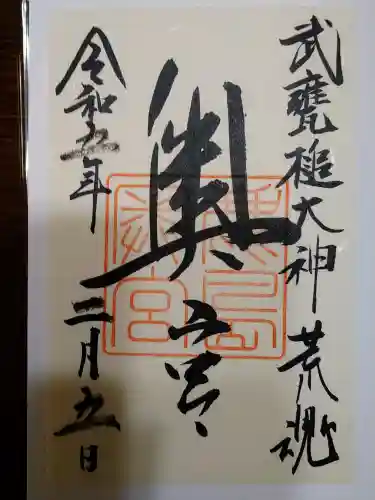 武甕槌大神 荒魂
奥宮
令和五年
二月五日
鹿島
奥宮